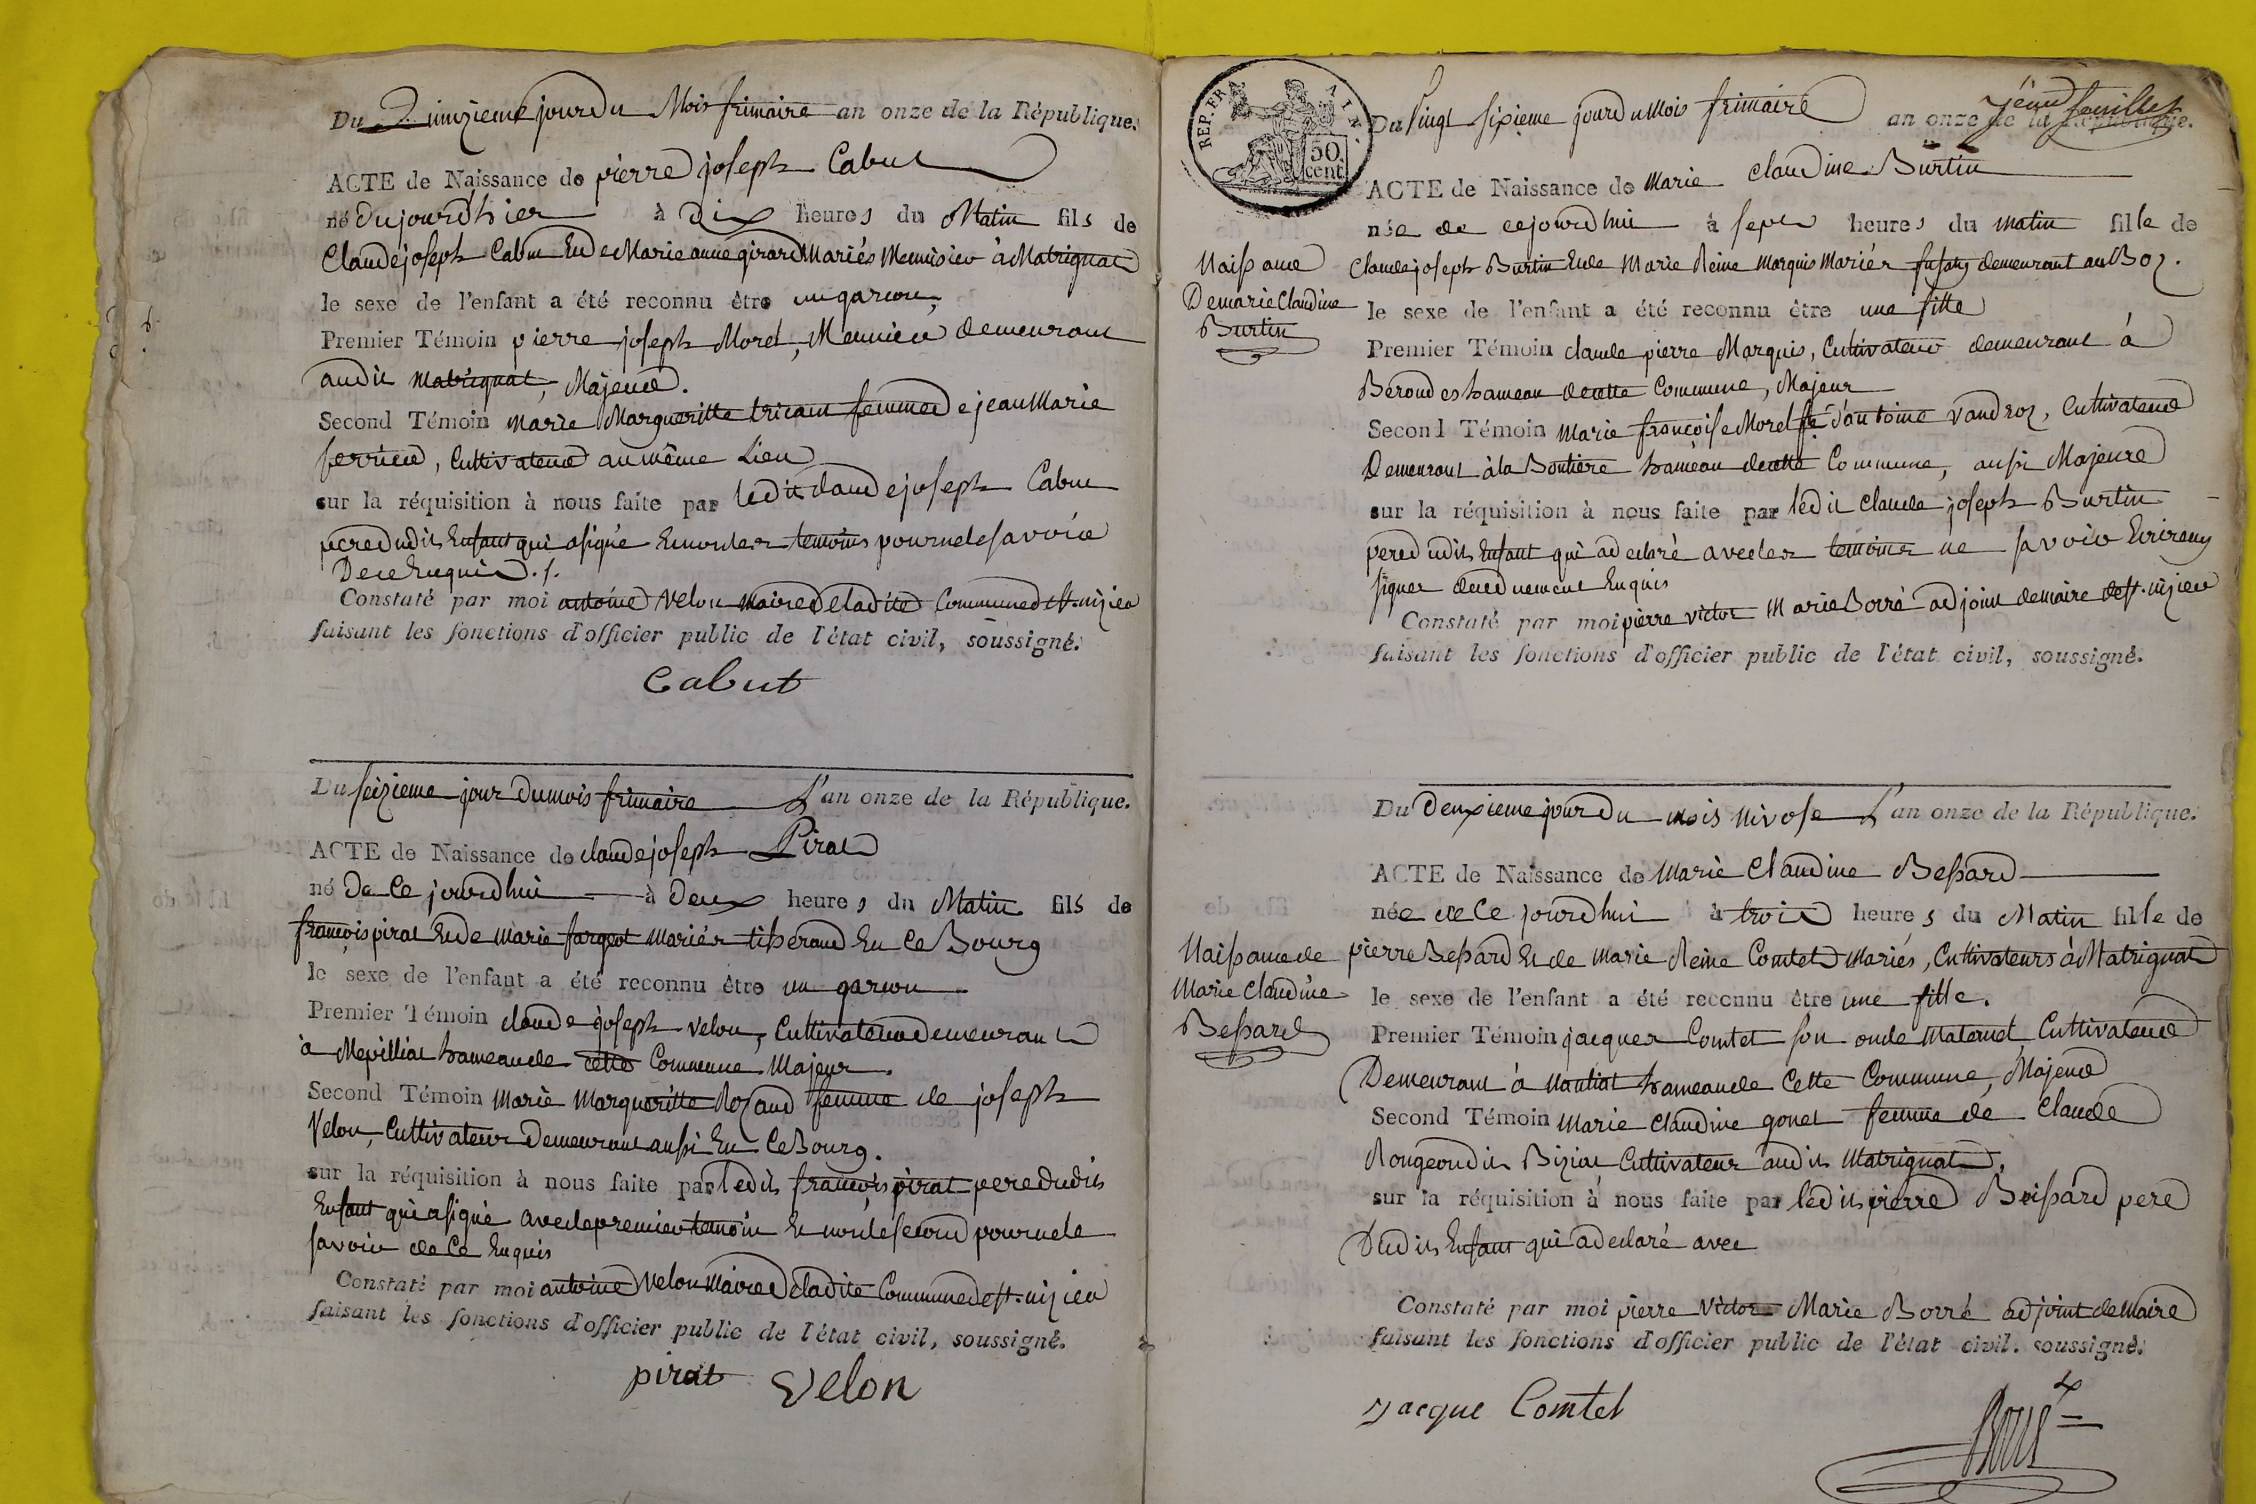 Du Quinzieme jour du Mois frimaire an onze de la République.
ACTE de Naissance de pierre joseph Cabut
né du jourd'hier à Dix heures du Matin fils de
Claude joseph Cabut Et de Marie anne girard Mariés Menuisier à Matrignat
le sexe de l'enfant a été reconnu être un garcon,
Premier Témoin pierre joseph Morel, Meunier demeurant
audit Matrignat, Majeur.
Second Témoin Marie Margueritte tricant femme de jean Marie
ferrier, Cultivateur au même Lieu
sur la réquisition à nous faite par ledit claude joseph Cabut
pere dudit Enfant qui a signé Et non les temoins pour ne le savoir
De ce Enquis ./.
Constaté par moi antoine Velon maire de ladite Commune de st. nizier
faisant les fonctions d'officier public de l'état civil, soussigné.
Cabut
Du seizieme jour du mois frimaire L'an onze de la République.
ACTE de Naissance de claude joseph Pirat
né De Ce jourd'hui à Deux heures du Matin fils de
françois pirat Et de Marie fargeot Mariés tisserand En Ce Bourg
le sexe de l'enfant a été reconnu être un garcon
Premier Témoin claude joseph Velon, Cultivateur demeurant
à Mepilliat hameau de cette Commune Majeur.
Second Témoin Marie Margueritte Rozand femme de joseph
Velon, Cultivateur Demeurant aussi En Ce Bourg.
sur la réquisition à nous faite par ledit françois pirat pere dudit
Enfant qui a signé avec le premier temoin Et non le second pour ne le
savoir de Ce Enquis
Constaté par moi antoine Velon Maire de ladite Commune de st. nizier
faisant les fonctions d'officier public de l'état civil, soussigné.
pirat Velon
REP. FRA
50 cent
feuillet
Du Vingt sixieme jour du Mois frimaire an onze de la République.
ACTE de Naissance de Marie Claudine Burtin
née de ce jourd'hui à sept heures du matin fille de
Claude joseph Burtin Et de Marie Reine Marquis Mariés demeurant au Boz.
le sexe de l'enfant a été reconnu être une fille
Premier Témoin claude pierre Marquis, Cultivateur demeurant à
Beroudes hameau de cette Commune, Majeur
Second Témoin Marie françoise Morel fe d'antoine Vandroz, Cultivateur
Demeurant à la Boutiere hameau de cette Commune, aussi Majeure
sur la réquisition à nous faite par ledit Claude joseph Burtin
pere dudit Enfant qui a declaré avec les temoins ne savoir Ecrire ny
signer de ce duement Enquis
Constaté par moi pierre victor Marie Borré adjoint de maire de st. nizier
faisant les fonctions d'officier public de l'état civil, soussigné.
Naissance
De marie Claudine
Burtin
Du Deuxieme jour du mois Nivose L'an onze de la République.
ACTE de Naissance de Marie Claudine Bessard
née de Ce jourd'hui à trois heures du Matin fille de
pierre Bessard Et de Marie Reine Comtet Mariés, Cultivateurs à Matrignat
le sexe de l'enfant a été reconnu être une fille.
Premier Témoin jacques Comtet son oncle Maternel Cultivateur
Demeurant à Nantiat hameau de Cette Commune, Majeur
Second Témoin Marie Claudine gonet femme de Claude
Rougeon dit Biziat Cultivateur audit Matrignat.
sur la réquisition à nous faite par ledit pierre Beissard pere
Dudit Enfant qui a declaré avec
Constaté par moi pierre Victor Marie Borré adjoint de Maire
faisant les fonctions d'officier public de l'état civil. soussigné.
Naissance de
Marie Claudine
Bessard
Jacque Comtet Borré